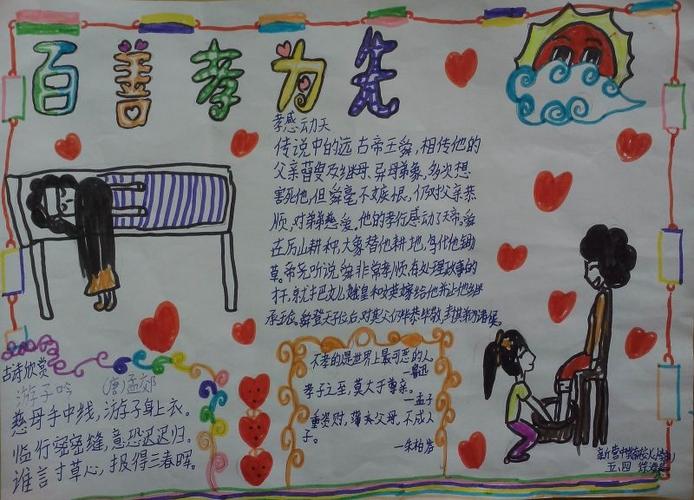 百善孝为先
孝感动天
传说中的远古帝王舜，相传他的
父亲瞽叟及继母、异母弟象，多次想
害死他，但舜毫不嫉恨，仍对父亲恭
顺，对弟弟慈爱。他的孝行感动了天帝。舜
在厉山耕种，大象替他耕地，鸟代他锄
草。帝尧听说舜非常孝顺，有处理政事的
才干，就把女儿娥皇和女英嫁给他并让他继
承王位。舜登天子位后，对其父仍毕恭毕敬，封其弟为诸侯。
古诗欣赏
游子吟 (唐)孟郊
慈母手中线，游子身上衣。
临行密密缝，意恐迟迟归。
谁言寸草心，报得三春晖。
不孝的是世界上最可恶的人
—鲁迅
孝子之至，莫大于尊亲。
—孟子
重资财，薄父母，不成人
子。
—朱柏庐
五、四